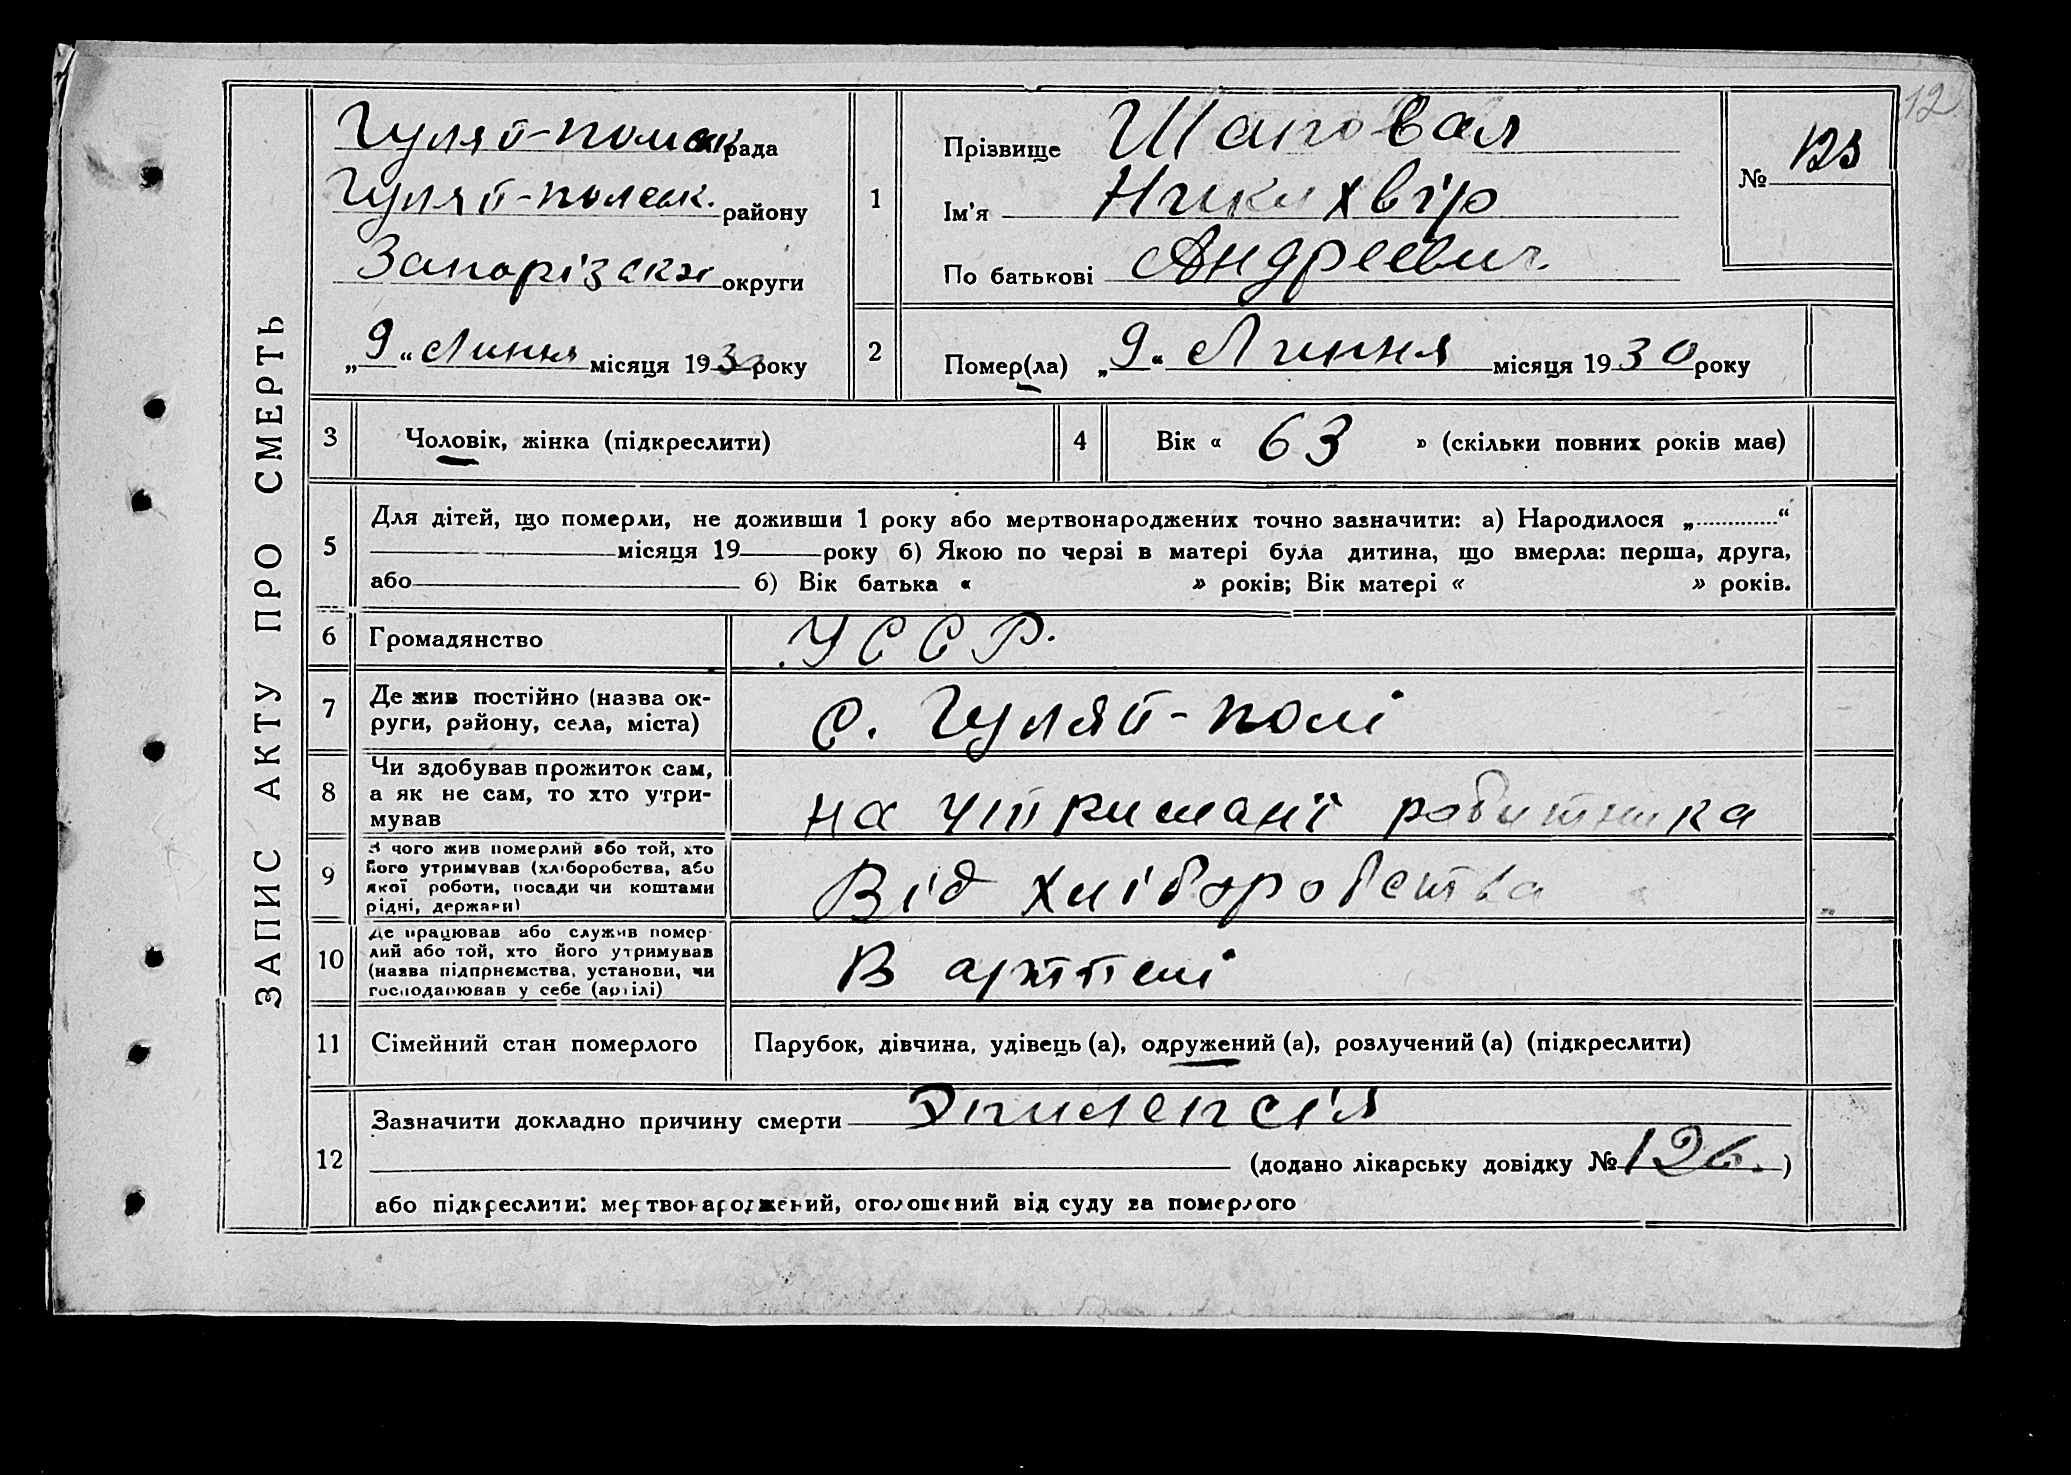 12
ЗАПИС АКТУ ПРО СМЕРТЬ
Гуляй-полєк рада
Гуляй-полєк. району
Запорізськ округи
„9“ Липня місяця 1930 року
1
Прізвище Шаповал
Ім'я Никихвір
По батькові Андреевич
№ 123
2
Помер(ла) „9“ Липня місяця 1930 року
3 Чоловік, жінка (підкреслити)
4 Вік « 63 » (скільки повних років має)
5
Для дітей, що померли, не доживши 1 року або мертвонароджених точно зазначити: а) Народилося „............“
місяця 19 року б) Якою по черзі в матері була дитина, що вмерла: перша, друга,
або б) Вік батька « » років; Вік матері « » років.
6 Громадянство УССР.
7 Де жив постійно (назва ок-
руги, району, села, міста)
с. Гуляй-полі
8 Чи здобував прожиток сам,
а як не сам, то хто утри-
мував
на утриманї робитника
9 З чого жив померлий або той, хто
його утримував (хліборобства, або
якої роботи, посади чи коштами
рідні, держави)
Від хліборобства
10 Де працював або служив помер-
лий або той, хто його утримував
(назва підприємства, установи, чи
господарював у себе (артілі)
В артелі
11 Сімейний стан померлого Парубок, дівчина, удівець (а), одружений (а), розлучений (а) (підкреслити)
12
Зазначити докладно причину смерти Эпилепсія
(додано лікарську довідку № 126.)
або підкреслити: мертвонароджений, оголошений від суду за померлого